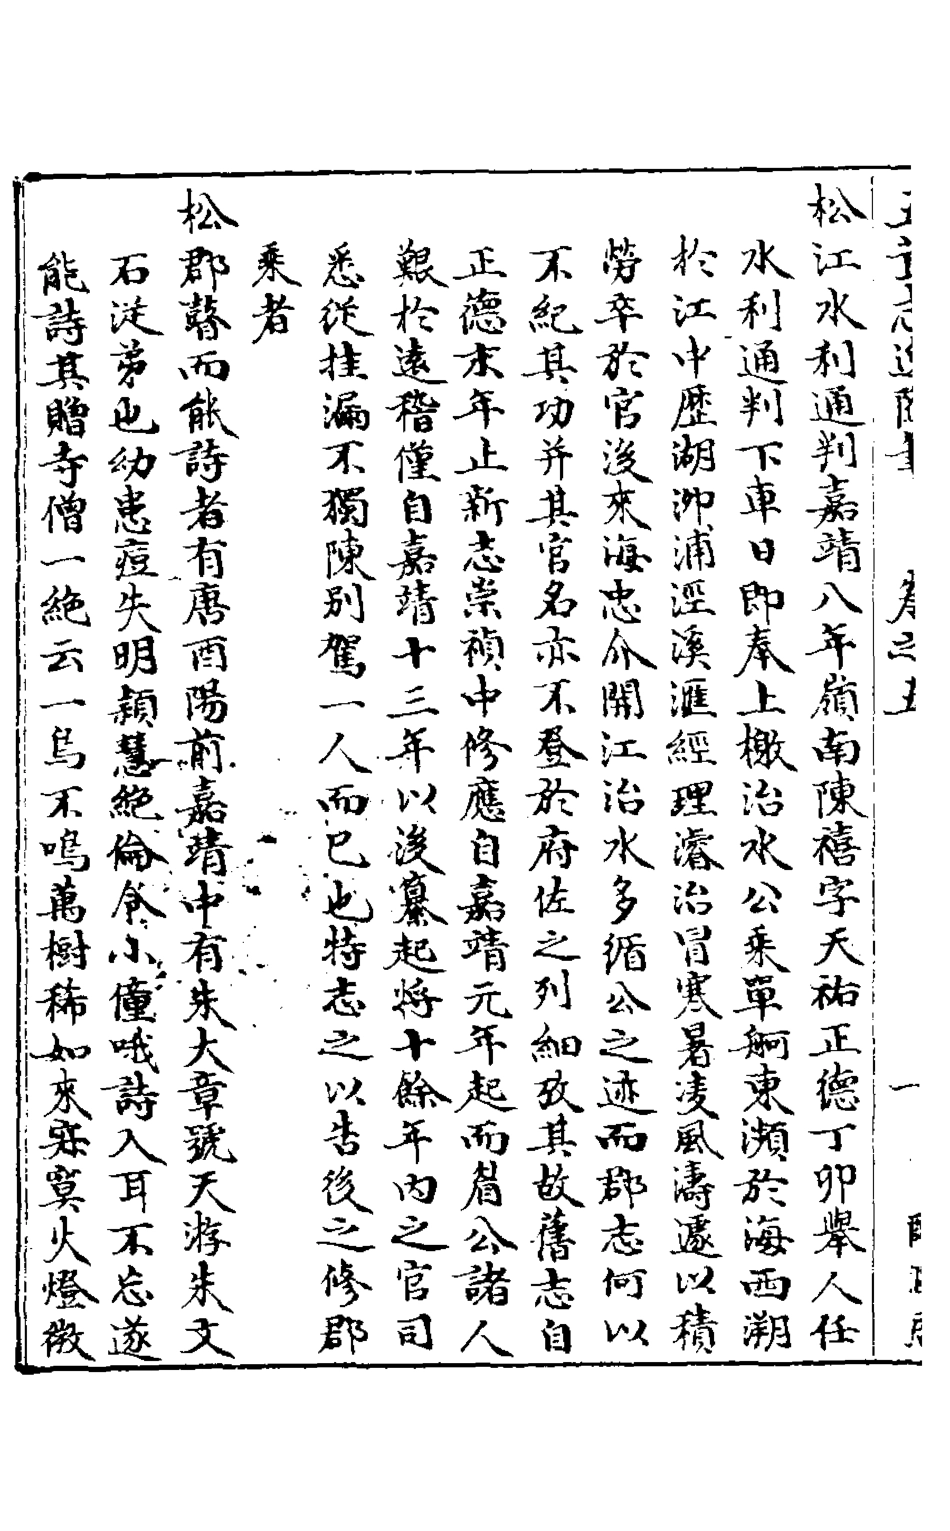 五茸志逸隨筆 卷之五 一
松江水利通判嘉靖八年嶺南陳禧字天祐正德丁卯舉人任
水利通判下車日即奉上檄治水公乘單舸東瀕於海西溯
於江中歷湖泖浦涇溪滙經理濬治冒寒暑凌風濤遽以積
勞卒於官後來海忠介開江治水多循公之迹而郡志何以
不紀其功并其官名亦不登於府佐之列細攷其故舊志自
正德末年止新志崇禎中修應自嘉靖元年起而眉公諸人
艱於遠稽僅自嘉靖十三年以後纂起將十餘年內之官司
悉從挂漏不獨陳別駕一人而已也特志之以告後之修郡
乘者
松郡瞽而能詩者有唐酉陽前嘉靖中有朱大章號天游朱文
石從弟也幼患痘失明穎慧絕倫食小僮哦詩入耳不忘遂
能詩其贈寺僧一絕云一鳥不鳴萬樹稀如來寂寞火燈微